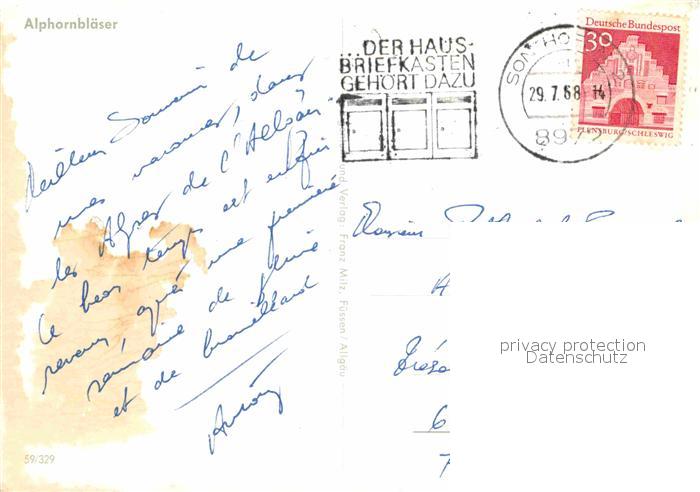 Alphornbläser
Meilleur Souvenir de
mes vacances, dans
les Alpes de l'Allgäu.
Le beau temps est enfin
revenu, après une première
semaine de pluie
et de brouillard
59/329
und Verlag: Franz Milz, Füssen / Allgäu
...DER HAUS-
BRIEFKASTEN
GEHÖRT DAZU
29.7.68 14
897
Deutsche Bundespost
30
FLENSBURG/SCHLESWIG
Monsieur
A
6
7
privacy protection
Datenschutz